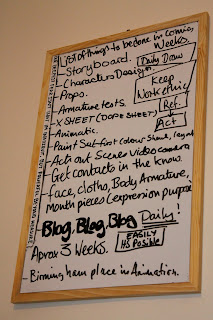 List of things to be done in coming
Weeks.
- Storyboard.
Daily Draw
- Characters Design
- Props.
Keep
Working
- Armature tests.
Ref.
- X SHEET (DOPE SHEET)
Act
- Animatic.
- Paint Set - first colour Shade, legal
- Act out Scenes video camera
- Get contacts in the know.
- face, clothes, Body Armature,
Mouth pieces (expression purpose
- Blog, Blog, Blog Daily!
Aprox 3 Weeks.
EASILY
IS Posible
- Birmingham place in Animation.